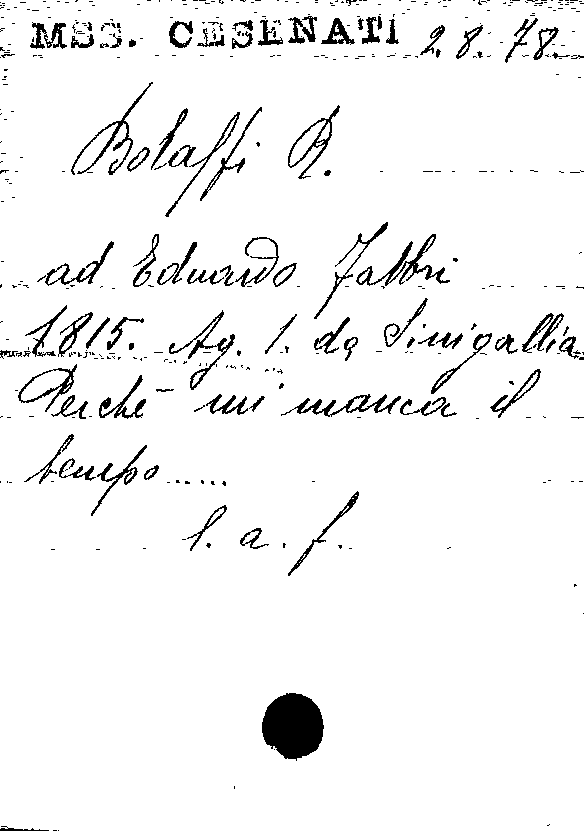 MSS. CESENATI 2.8.78.
Bolaffi R.
ad Eduardo Fabbri
1815. Ag. 1. da Sinigallia
Perchè mi manca il
tempo.....
l. a. f.